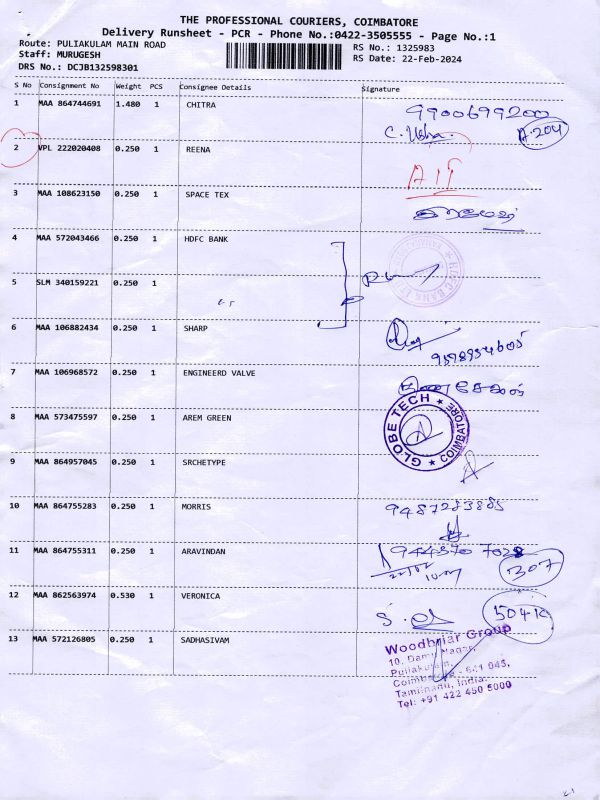 THE PROFESSIONAL COURIERS, COIMBATORE
Delivery Runsheet - PCR - Phone No.:0422-3505555 - Page No.:1
Route: PULIAKULAM MAIN ROAD RS No.: 1325983
Staff: MURUGESH RS Date: 22-Feb-2024
DRS No.: DCJB132598301
S No Consignment No Weight PCS Consignee Details Signature
1 MAA 864744691 1.480 1 CHITRA 9900699200
C. Usha. A.204
2 VPL 222020408 0.250 1 REENA
3 MAA 108623150 0.250 1 SPACE TEX
4 MAA 572043466 0.250 1 HDFC BANK
5 SLM 340159221 0.250 1
6 MAA 106882434 0.250 1 SHARP
7 MAA 106968572 0.250 1 ENGINEERD VALVE
GLOBE TECH ★ COIMBATORE ★
8 MAA 573475597 0.250 1 AREM GREEN
9 MAA 864957045 0.250 1 SRCHETYPE
10 MAA 864755283 0.250 1 MORRIS 9487283885
11 MAA 864755311 0.250 1 ARAVINDAN 944370 7028
307
12 MAA 862563974 0.530 1 VERONICA 504K
13 MAA 572126805 0.250 1 SADHASIVAM
Woodbriar Group
Coimbatore - 641 045,
Tamilnadu, India.
Tel: +91 422 450 5000